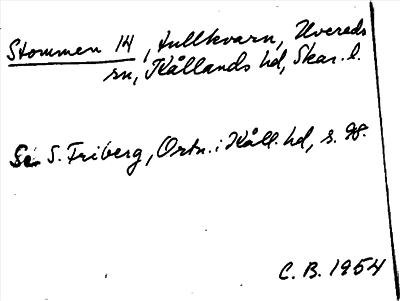 Stommen 14, tullkvarn, Uvereds
sn, Kållands hd, Skar. l.
Se S. Friberg, Ortn. i Kåll. hd, s. 98.
C. B. 1954